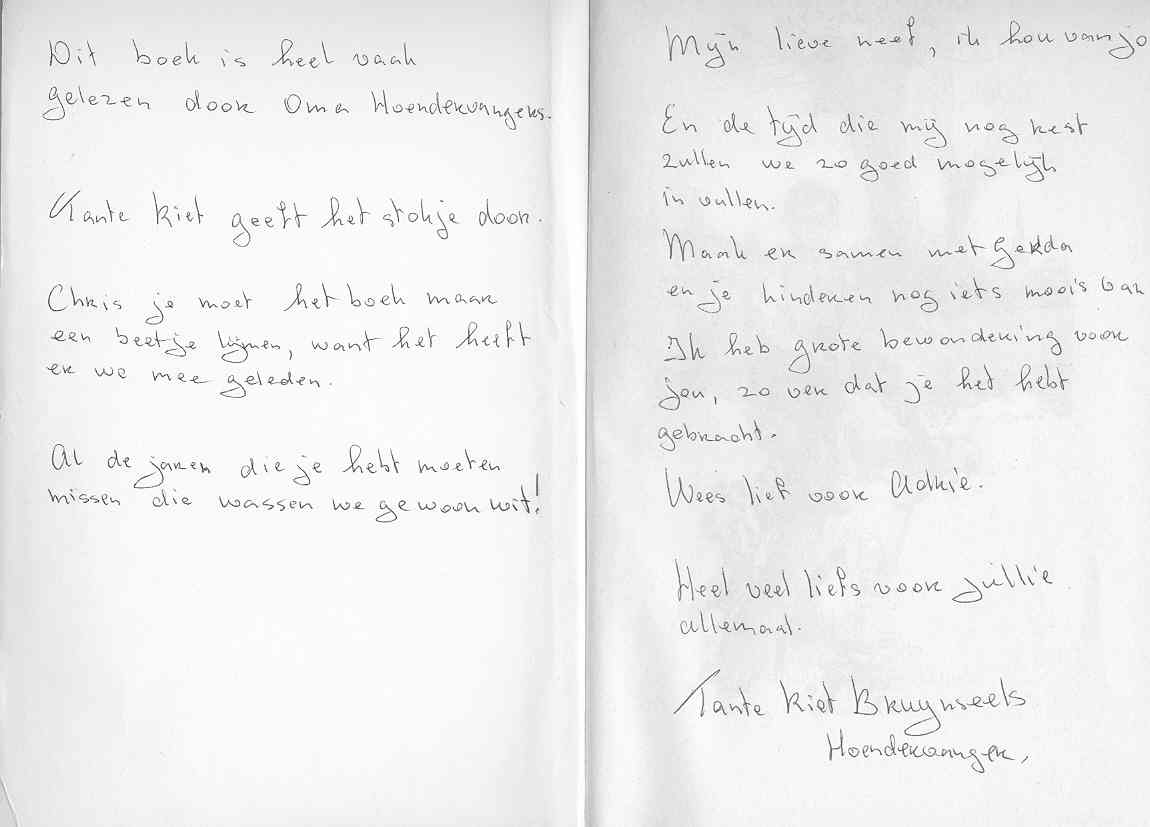 Dit boek is heel vaak
gelezen door Oma Hoendervangers.
Tante Riet geeft het stokje door.
Chris je moet het boek maar
een beetje lijmen, want het heeft
er we mee geleden.
Al de jaren die je hebt moeten
missen die wassen we gewoon uit!
Mijn lieve neef, ik hou van jo
En de tijd die mij nog rest
zullen we zo goed mogelijk
in vullen.
Maak er samen met Gerda
en je kinderen nog iets moois van
Ik heb grote bewondering voor
jou, zo ver dat je het hebt
gebracht.
Wees lief voor Adrie.
Heel veel liefs voor jullie
allemaal.
Tante Riet Bruynseels
Hoendervanger,